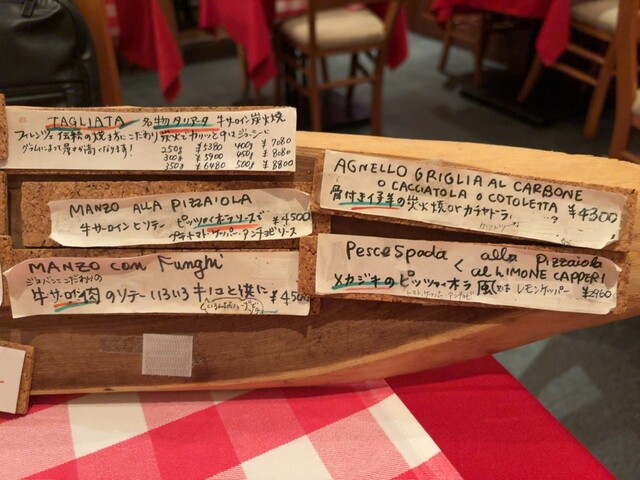 TAGLIATA 名物タリアータ 牛サーロイン炭火焼
フィレンツェ伝統の焼き方にこだわり炭火でカリッと中はジューシー
グラムによって厚さが高くなります!
250g ¥5380 400g ¥7080
300g ¥5900 450g ¥8080
350g ¥6480 500g ¥8800
MANZO ALLA PIZZAIOLA
牛サーロインソテー ピッツァイオラソースで ¥4500
トマト・ケッパー・アンチョビソース
MANZO con Funghi
ジョバンニこだわりの
牛サーロイン肉のソテーいろいろキノコと共に ¥450
AGNELLO GRIGLIA AL CARBONE
O CACCIATOLA O COTOLETTA
骨付き仔羊の炭火焼orカチャトーラ ¥4300
PesceSpada < alla Pizzaiola
al LIMONE CAPPERI
メカジキのピッツァイオラ風又は レモンケッパー ¥2960
トマト・ケッパー・アンチョビ